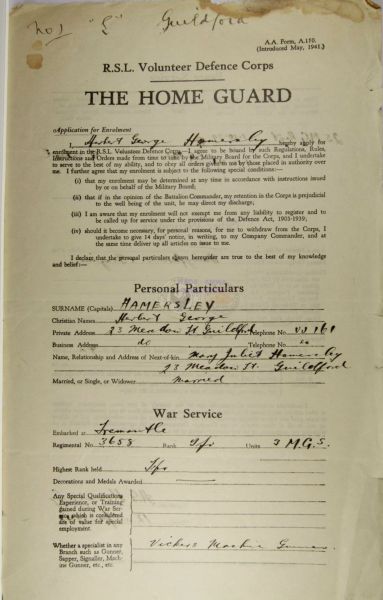 No 1 "S" Guildford
A.A. Form, A.150.
(Introduced May, 1941.)
R.S.L. Volunteer Defence Corps
THE HOME GUARD
Application for Enrolment
I, Herbert George Hamersley hereby apply for
enrolment in the R.S.L. Volunteer Defence Corps.—I agree to be bound by such Regulations, Rules,
Instructions and Orders made from time to time by the Military Board for the Corps, and I undertake
to serve to the best of my ability, and to obey all orders given to me by those placed in authority over
me. I further agree that my enrolment is subject to the following special conditions:—
(i) that my enrolment may be determined at any time in accordance with instructions
issued by or on behalf of the Military Board;
(ii) that if in the opinion of the Battalion Commander, my retention in the Corps is prejudicial
to the well being of the unit, he may direct my discharge;
(iii) I am aware that my enrolment will not exempt me from any liability to register and to
be called up for service under the provisions of the Defence Act, 1903-1939;
(iv) should it become necessary, for personal reasons, for me to withdraw from the Corps, I
undertake to give 14 days' notice, in writing, to my Company Commander, and at
the same time deliver up all articles on issue to me.
I declare that the personal particulars shown hereunder are true to the best of my knowledge
and belief:—
Personal Particulars
SURNAME (Capitals) HAMERSLEY
Christian Names Herbert George
Private Address 23 Meadow St. Guildford Telephone No. UJ 161
Business Address do Telephone No.
Name, Relationship and Address of Next-of-kin Mary Juliet Hamersley
23 Meadow St. Guildford
Married, or Single, or Widower Married
War Service
Embarked at Fremantle
Regimental No. 3658 Rank Tpr Units 3 M.G.S.
Highest Rank held Tpr
Decorations and Medals Awarded
Any Special Qualifications,
Experience, or Training
gained during War Ser-
vice which is considered
are of value for special
employment.
Whether a specialist in any
Branch such as Gunner,
Sapper, Signaller, Mach-
ine Gunner, etc., etc.
Vickers Machine Gunner